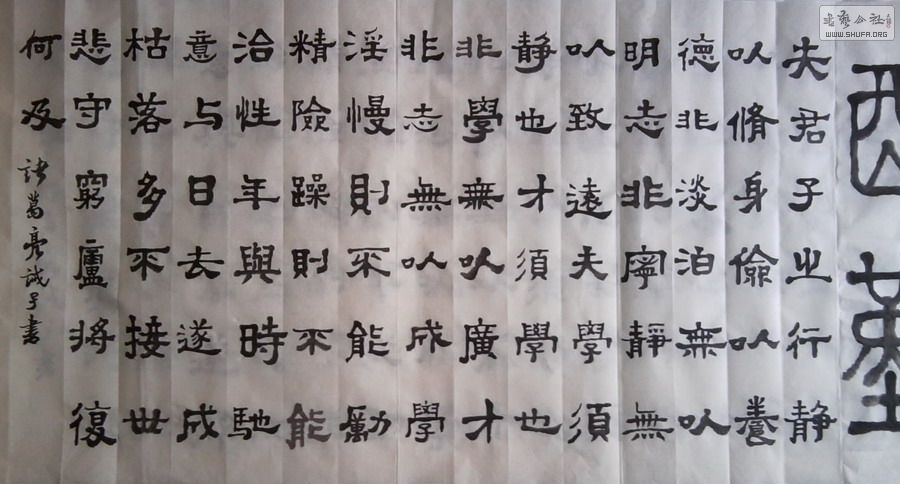 夫君子之行静
以脩身儉以養
德非淡泊無以
明志非寧靜無
以致遠夫學須
静也才須學也
非學無以廣才
非志無以成學
淫慢則不能勵
精險躁則不能
治性年與時馳
意与日去遂成
枯落多不接世
悲守窮廬將復
何及 諸葛亮誡子書
书艺公社
WWW.SHUFA.ORG